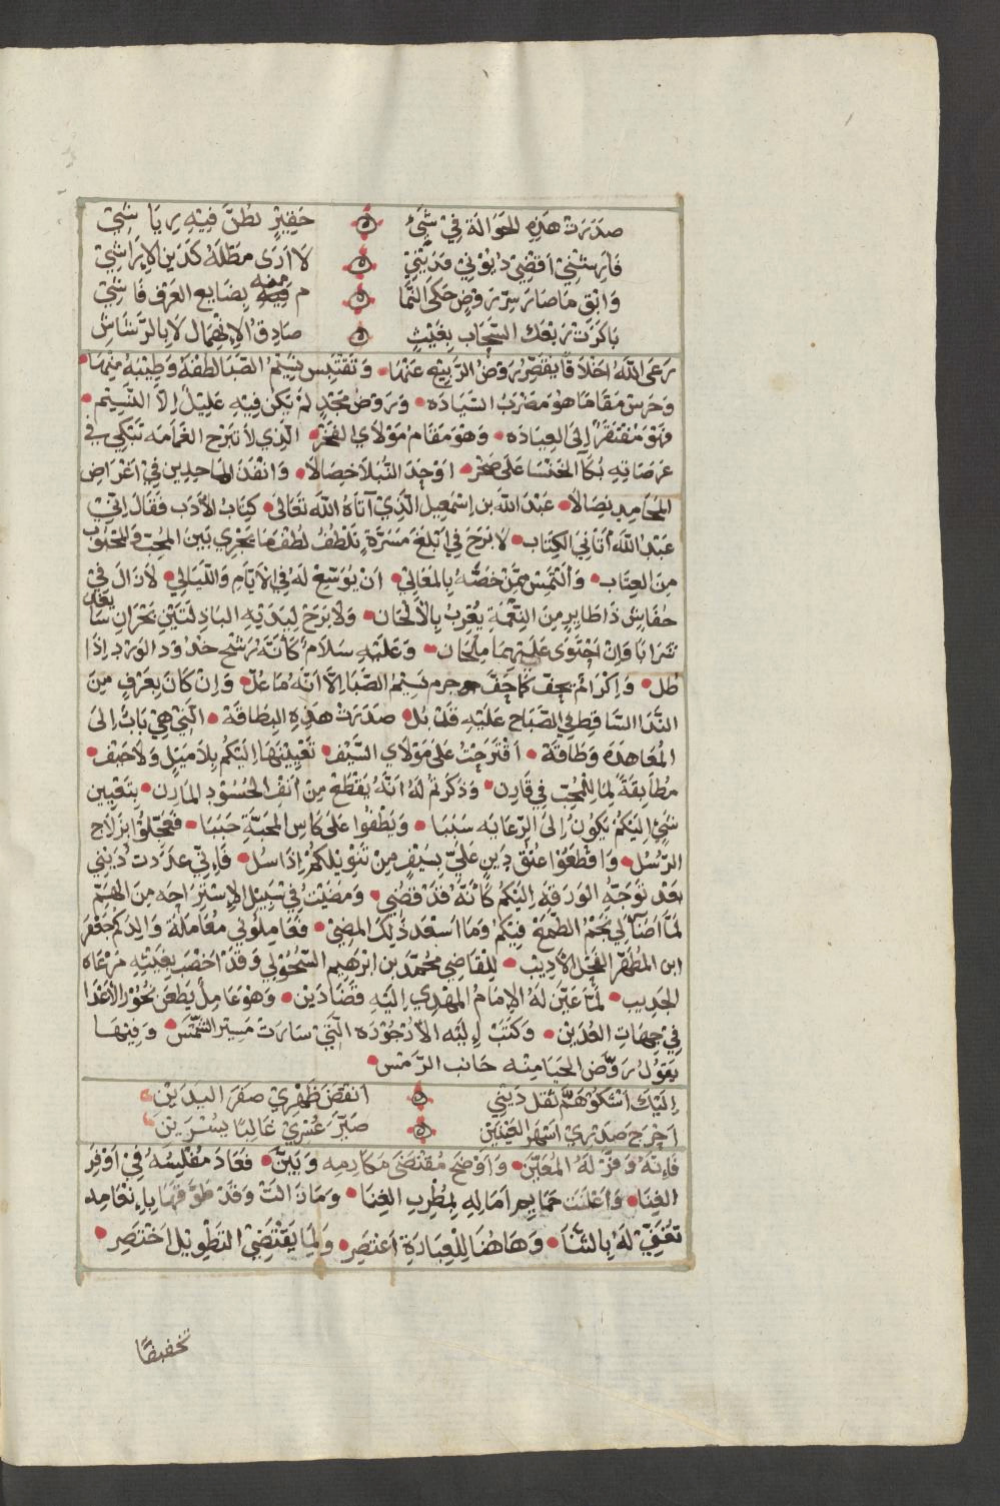 صدرت هذه الحوالة في شيء ه حقيرٍ نظنّ فيه رياشي
فارشني اقضي ديوني فديني ه لا ارى مطله كدين الإبراشي
وابق ما صار سرّ روض حكى النما ه م فيه منه بضايع العرف فاشي
باكرت ربعك السحاب بغيث ه صادق الإنهمال لا بالرشاش
رعى الله اخلاقا يقصر روض الربيع عنها • وتقتبس نسيم الصبا لطفه وطيبه منها •
وحرس مقاما هو مضرب السياده • وروض مجدٍ لم يكن فيه عليل إلا النسيم •
فهو مفتقر إلى العياده • وهو مقام مولاي الفخر • الذي لا تبرح الغمامه تبكي في
عرصاته بكا الخنسا على صخر • اوحد النبلا خصالا • وانفذ الماجدين في اغراض
المحامد نصالا • عبد الله بن اسمعيل الذي آتاه الله تعالى • كتاب الأدب فقال اني
عبد الله أتاني الكتاب • لا برح في ابلغ مسرة، تلطف لطف ما يجري بين المحب والمحبوب
من العتاب • وألتمس ممن خصه بالمعالي • ان يوسّع له في الأيام والليالي • لا زال في
خفاش ذا طاير من النعمة يعرب بالألحان • ولا برح ليديه الباذلتين بحران سايغان
شرابا وإن احتوى عليهما ملحان • وعليه سلام كأنه رشح خدود الورد إذا
طل • واكرام يحف كما حف نسيم الصبا إلا انه ما عل • وإن كان بعرف من
الندا الساقط في الصباح عليه قد بل • صدرت هذه البطاقة • التي هي باب إلى
المعاهده وطاقة • اقترحت على مولاي السيف • تعيينها اليكم بلا ميل ولا حيف •
مطابقة لما للمحب في قارن • وذكرتم له انه يقطع من أنف الحسود المارن • بتعيين
شيء اليكم يكون إلى الرعايه سببا • ويطفوا على كاس المحبة حببا • فعجلوا بزلاج
الرسل • واقطعوا عنق دين عليّ بسيف من تنويلكم إذا سل • فاني عددت ديني
بعد توجه الورقه اليكم كأنه قد قضي • ومضيت في سبيل الإستراحه من الهم
لما اضآ لي نجم الطمع فيكم وما اسعد ذلك المضي • فعاملوني معاملة والدكم جعفر
ابن المطهر الفحل الأديب • للقاضي محمد بن ابرهيم السحولي وقد اخصب بغيثه مرعاه
الجديب • لما عين له الإمام المهدي اليه قضا دين • وهو عامل يطعن نحور الأعدا
في جهات العدين • وكتب إليه الأرجوزه التي سارت مسير الشمس • وفيها
يقول روض الحيا منه جانب الرمس •
إليك اشكو همّ ثقل ديني ه أنقض ظهري صفر اليدين
اخرج صدري اسهر العينين ه صير عسري غالبا يسرين
فإنه وفر له المعين • واوضح مقتضى مكارمه وبين • فعاد مفليسه في اوفر
الغنا • واعلنت حمايم اماله لمطرب الغنا • وما زالت وقد طوقها بإنعامه
تغني له بالثنا • وها هنا للعبارة اعتصر • ولما يقتضي التطويل اختصر •
تخفيفًا